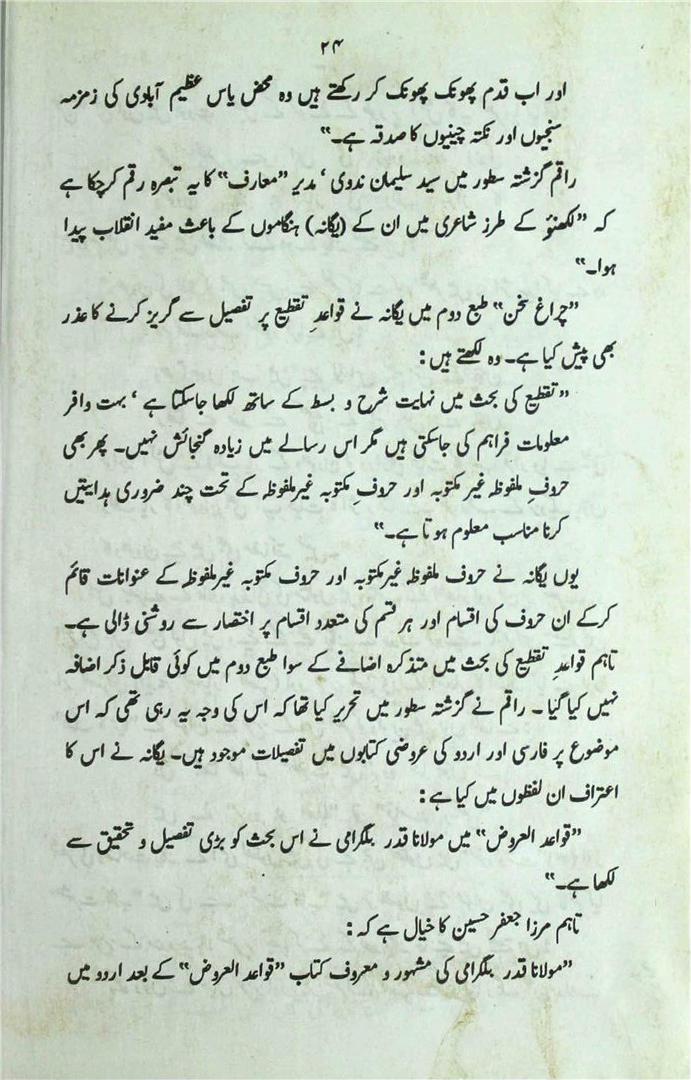 ۲۴
اور اب قدم پھونک پھونک کر رکھتے ہیں وہ محض یاس عظیم آبادی کی زمزمہ
سنجیوں اور نکتہ چینیوں کا صدقہ ہے۔"
راقم گزشتہ سطور میں سید سلیمان ندوی ' مدیر "معارف" کا یہ تبصرہ رقم کرچکا ہے
کہ "لکھنؤ کے طرز شاعری میں ان کے (یگانہ) ہنگاموں کے باعث مفید انقلاب پیدا
ہوا۔"
"چراغ سخن" طبع دوم میں یگانہ نے قواعدِ تقطیع پر تفصیل سے گریز کرنے کا عذر
بھی پیش کیا ہے۔ وہ لکھتے ہیں :
"تقطیع کی بحث میں نہایت شرح و بسط کے ساتھ لکھا جاسکتا ہے ' بہت وافر
معلومات فراہم کی جاسکتی ہیں مگر اس رسالے میں زیادہ گنجائش نہیں۔ پھر بھی
حروفِ ملفوظہ غیر مکتوبہ اور حروفِ مکتوبہ غیرملفوظہ کے تحت چند ضروری ہدایتیں
کرنا مناسب معلوم ہوتا ہے۔"
یوں یگانہ نے حروف ملفوظہ غیرمکتوبہ اور حروف مکتوبہ غیرملفوظہ کے عنوانات قائم
کرکے ان حروف کی اقسام اور ہر قسم کی متعدد اقسام پر اختصار سے روشنی ڈالی ہے۔
تاہم قواعدِ تقطیع کی بحث میں متذکرہ اضافے کے سوا طبع دوم میں کوئی قابل ذکر اضافہ
نہیں کیا گیا ۔ راقم نے گزشتہ سطور میں تحریر کیا تھا کہ اس کی وجہ یہ رہی تھی کہ اس
موضوع پر فارسی اور اردو کی عروضی کتابوں میں تفصیلات موجود ہیں۔ یگانہ نے اس کا
اعتراف ان لفظوں میں کیا ہے :
"قواعد العروض" میں مولانا قدر بلگرامی نے اس بحث کو بڑی تفصیل و تحقیق سے
لکھا ہے۔"
تاہم مرزا جعفر حسین کا خیال ہے کہ :
"مولانا قدر بلگرامی کی مشہور و معروف کتاب "قواعد العروض" کے بعد اردو میں